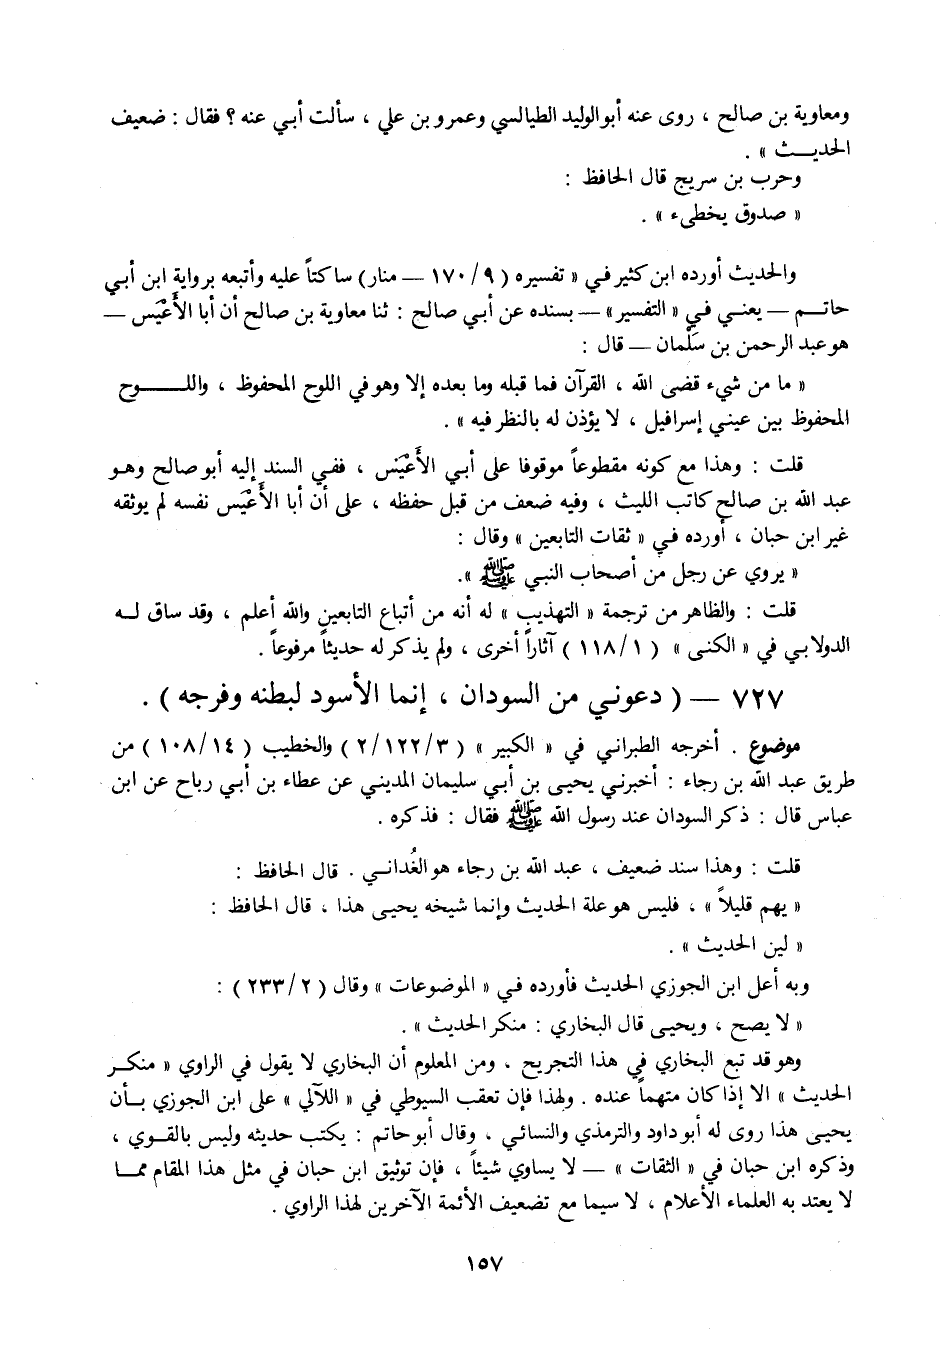 ومعاوية بن صالح ، روى عنه أبو الوليد الطيالسي وعمرو بن علي ، سألت أبي عنه ؟ فقال : ضعيف
الحديــث » .
وحرب بن سريج قال الحافظ :
« صدوق يخطيء » .
والحديث أورده ابن كثير في « تفسيره ( ٩/ ١٧٠ ـــ منار) ساكتاً عليه وأتبعه برواية ابن أبي
حاتــم ـــ يعنـي فـي « التفسير» ـــ بسنده عن أبـي صالح : ثنا معاوية بن صالح أن أبا الأَعْيَس ـــ
هو عبد الرحمن بن سَلْمان ـــ قال :
« ما من شيء قضى الله ، القرآن فما قبله وما بعده إلا وهو في اللوح المحفوظ ، واللـــــوح
المحفوظ بين عيني إسرافيل ، لا يؤذن له بالنظر فيه » .
قلت : وهذا مع كونه مقطوعاً موقوفا على أبـي الأَعْيَس ، ففـي السند إليه أبو صالح وهـو
عبد الله بن صالح كاتب الليث ، وفيه ضعف من قبل حفظه ، على أن أبا الأَعْيَس نفسه لم يوثقه
غير ابن حبان ، أورده فـي « ثقات التابعين » وقال :
« يروي عن رجل من أصحاب النبي ﷺ ».
قلت : والظاهر من ترجمة « التهذيب » له أنه من أتباع التابعين والله أعلم ، وقد ساق لــه
الدولابي في « الكنى » ( ١/ ١١٨ ) آثاراً أخرى ، ولم يذكر له حديثاً مرفوعاً .
٧٢٧ ـــ ( دعوني من السودان ، إنما الأسود لبطنه وفرجه ) .
موضوع . أخرجه الطبراني في « الكبير » ( ٣/ ١٢٢/ ٢ ) والخطيب ( ١٤/ ١٠٨ ) من
طريق عبد الله بن رجاء : أخبرني يحيى بن أبي سليمان المديني عن عطاء بن أبي رباح عن ابن
عباس قال : ذكر السودان عند رسول الله ﷺ فقال : فذكره .
قلت : وهذا سند ضعيف ، عبد الله بن رجاء هو الغُدانـي . قال الحافظ :
« يهم قليلاً » ، فليس هو علة الحديث وإنما شيخه يحيى هذا ، قال الحافظ :
« لين الحديث » .
وبه أعل ابن الجوزي الحديث فأورده فـي « الموضوعات » وقال ( ٢/ ٢٣٣ ) :
« لا يصح ، ويحيى قال البخاري : منكر الحديث » .
وهو قد تبع البخاري في هذا التجريح ، ومن المعلوم أن البخاري لا يقول في الراوي « منكـر
الحديث » الا إذا كان متهماً عنده . ولهذا فإن تعقب السيوطي في « اللآلي » على ابن الجوزي بـأن
يحيى هذا روى له أبو داود والترمذي والنسائي ، وقال أبو حاتم : يكتب حديثه وليس بالقـوي ،
وذكره ابن حبان في « الثقات » ـــ لا يساوي شيئاً ، فإن توثيق ابن حبان في مثل هذا المقام ممـا
لا يعتد به العلماء الأعلام ، لا سيما مع تضعيف الأئمة الآخرين لهذا الراوي .
١٥٧